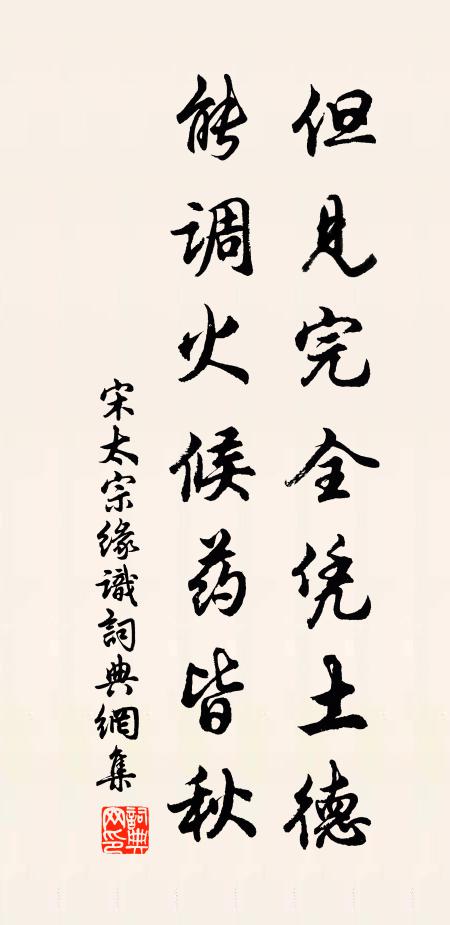 但见完全凭土德
能调火候药皆秋
宋太宗缘识词典網集
詞典网印